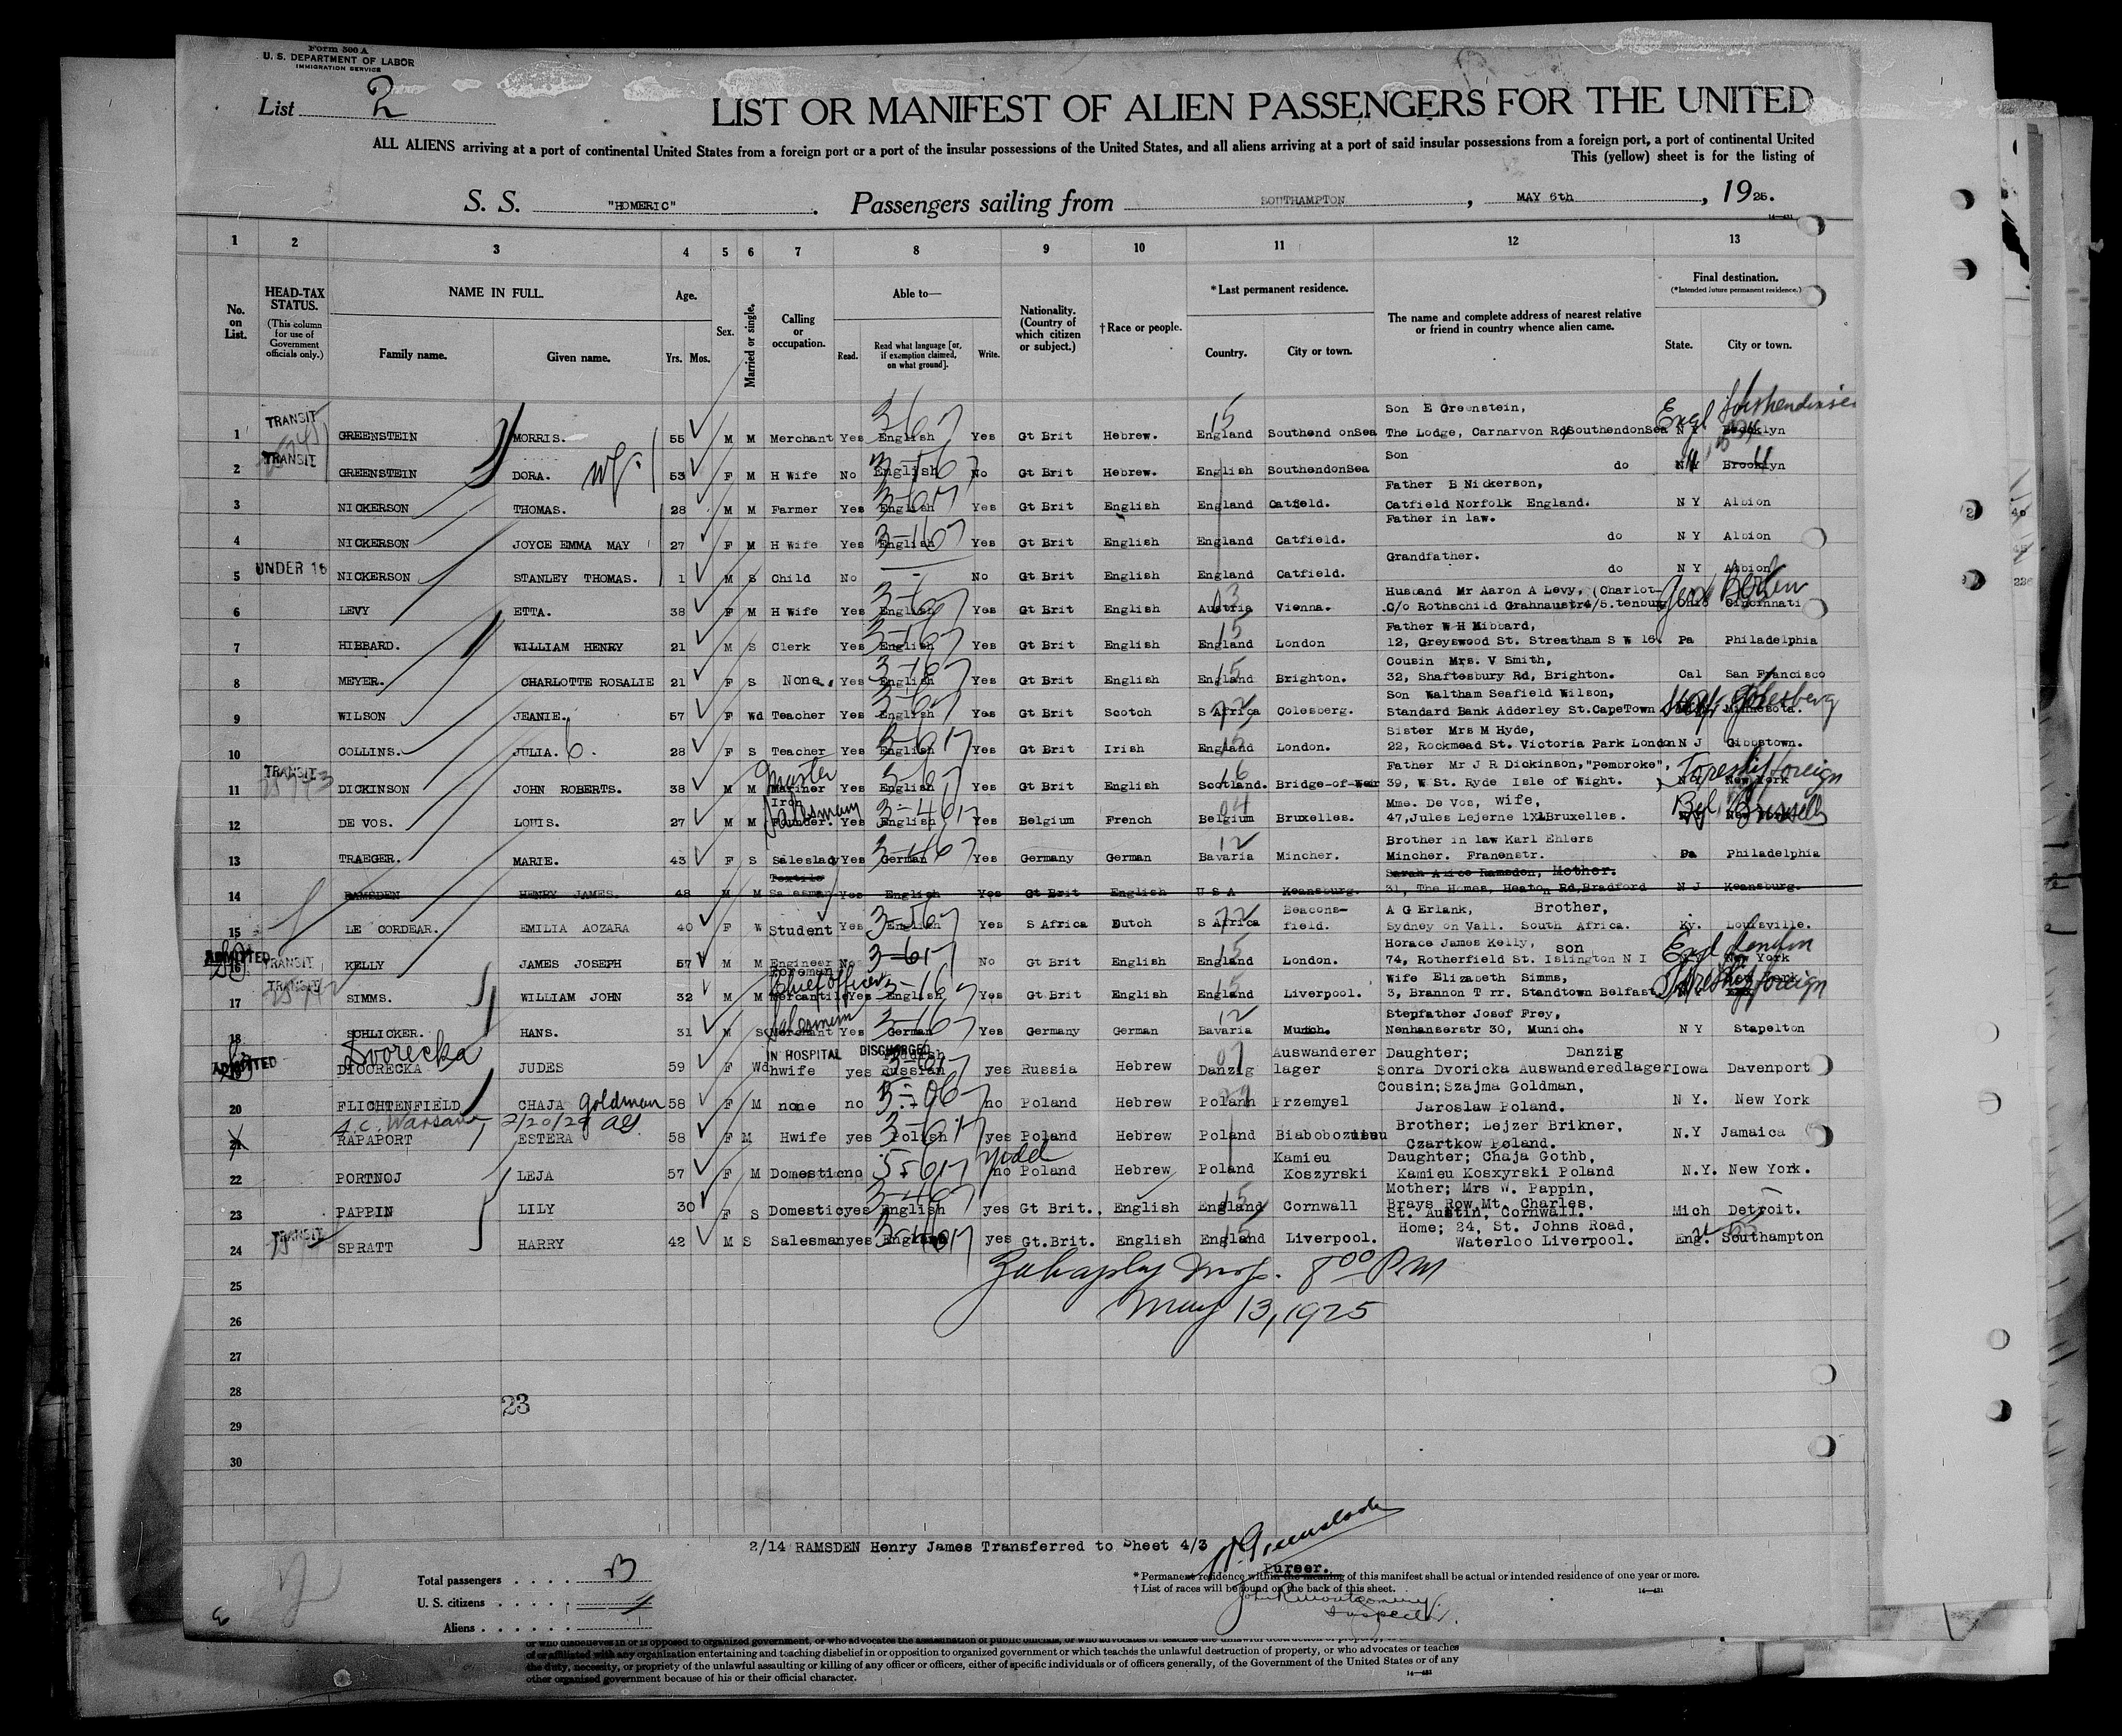 Form 500 A
U. S. DEPARTMENT OF LABOR
IMMIGRATION SERVICE
List 2
LIST OR MANIFEST OF ALIEN PASSENGERS FOR THE UNITED
ALL ALIENS arriving at a port of continental United States from a foreign port or a port of the insular possessions of the United States, and all aliens arriving at a port of said insular possessions from a foreign port, a port of continental United
This (yellow) sheet is for the listing of
S. S. "HOMERIC". Passengers sailing from SOUTHAMPTON, MAY 6th, 1925.
1 2 3 4 5 6 7 8 9 10 11 12 13
No. on List.
HEAD-TAX STATUS.
(This column for use of Government officials only.)
NAME IN FULL.
Family name. Given name.
Age.
Yrs. Mos.
Sex.
Married or single.
Calling or occupation.
Able to—
Read. Read what language [or, if exemption claimed, on what ground]. Write.
Nationality. (Country of which citizen or subject.)
† Race or people.
*Last permanent residence.
Country. City or town.
The name and complete address of nearest relative or friend in country whence alien came.
Final destination.
(*Intended future permanent residence.)
State. City or town.
Son E Greenstein,
1 TRANSIT GREENSTEIN MORRIS. 55 M M Merchant Yes English Yes Gt Brit Hebrew. England Southend onSea The Lodge, Carnarvon Rd SouthendonSea N Y Brooklyn
Son
2 TRANSIT GREENSTEIN DORA. 53 F M H Wife No English No Gt Brit Hebrew. English SouthendonSea do NY Brooklyn
Father B Nickerson,
3 NICKERSON THOMAS. 28 M M Farmer Yes English Yes Gt Brit English England Catfield. Catfield Norfolk England. N Y Albion
Father in law.
4 NICKERSON JOYCE EMMA MAY 27 F M H Wife Yes English Yes Gt Brit English England Catfield. do N Y Albion
Grandfather.
5 UNDER 16 NICKERSON STANLEY THOMAS. 1 M S Child No - No Gt Brit English England Catfield. do N Y Albion
Husband Mr Aaron A Levy, (Charlot-
6 LEVY ETTA. 38 F M H Wife Yes English Yes Gt Brit English Austria Vienna. C/o Rothschild Grahnaustr4/5.tenburg Ohio Cincinnati
Berlin
Father W H Hibbard,
7 HIBBARD. WILLIAM HENRY 21 M S Clerk Yes English Yes Gt Brit English England London 12, Greyswood St. Streatham S W 16. Pa Philadelphia
Cousin Mrs. V Smith,
8 MEYER. CHARLOTTE ROSALIE 21 F S None. Yes English Yes Gt Brit English England Brighton. 32, Shaftesbury Rd, Brighton. Cal San Francisco
Son Waltham Seafield Wilson,
9 WILSON JEANIE. 57 F Wd Teacher Yes English Yes Gt Brit Scotch S Africa Colesberg. Standard Bank Adderley St.CapeTown Minnesota.
Sister Mrs M Hyde,
10 COLLINS. JULIA. 28 F S Teacher Yes English Yes Gt Brit Irish England London. 22, Rockmead St. Victoria Park London N J Gibbstown.
Father Mr J R Dickinson,"Pembroke".
11 TRANSIT DICKINSON JOHN ROBERTS. 38 M M Master Mariner Yes English Yes Gt Brit English Scotland. Bridge-of-Weir 39, W St. Ryde Isle of Wight. New York
Iron Mme. De Vos, wife,
12 DE VOS. LOUIS. 27 M M Founder. Salesman Yes English Yes Belgium French Belgium Bruxelles. 47,Jules Lejerne 1XL Bruxelles. Bel Brussells
Brother in law Karl Ehlers
13 TRAEGER. MARIE. 43 F S Saleslady Yes German Yes Germany German Bavaria Mincher. Mincher. Franenstr. Pa Philadelphia
Textile Sarah Alice Ramsden, Mother.
14 RAMSDEN HENRY JAMES. 48 M M Salesman Yes English Yes Gt Brit English U S A Keansburg. 31, The Homes, Heaton Rd,Bradford N J Keansburg.
Beacons- A G Erlank, Brother,
15 LE CORDEAR. EMILIA AOZARA 40 F W Student Yes English Yes S Africa Dutch S Africa field. Sydney on Vall. South Africa. Ky. Louisville.
Horace James Kelly, son
16 ADMITTED TRANSIT KELLY JAMES JOSEPH 57 M M Engineer No No Gt Brit English England London. 74, Rotherfield St. Islington N I Engl London New York
Foreman Wife Elizabeth Simms,
17 TRANSIT SIMMS. WILLIAM JOHN 32 M M Chief Officer Mercantile Yes English Yes Gt Brit English England Liverpool. 3, Brannon T rr. Standtown Belfast foreign
Stepfather Josef Frey,
18 SCHLICKER. HANS. 31 M S Merchant Salesman Yes German Yes Germany German Bavaria Munich. Nenhanserstr 30, Munich. N Y Stapelton
Dvorecka IN HOSPITAL DISCHARGED Auswanderer Daughter; Danzig
19 ADMITTED DIOORECKA JUDES 59 F Wd hwife yes Russian yes Russia Hebrew Danzig lager Sonra Dvoricka Auswanderedlager Iowa Davenport
Cousin; Szajma Goldman,
20 FLICHTENFIELD CHAJA Goldman 58 F M none no no Poland Hebrew Polann Przemysl Jaroslaw Poland. N Y. New York
Warsaw 2/20/29
Brother; Lejzer Brikner,
21 RAPAPORT ESTERA 58 F M Hwife yes Polish yes Poland Hebrew Poland Czartkow Poland. N.Y Jamaica
Kamieu Daughter; Chaja Gothb,
22 PORTNOJ LEJA 57 F M Domestic no Yidd no Poland Hebrew Poland Koszyrski Kamieu Kosxyrski Poland N.Y. New York.
Mother; Mrs W. Pappin,
23 PAPPIN LILY 30 F S Domestic yes English yes Gt Brit. English England Cornwall Brays Row Mt. Charles, St. Austin, Cornwall. Mich Detroit.
Home; 24, St. Johns Road,
24 TRANSIT SPRATT HARRY 42 M S Salesman yes England yes Gt.Brit. English England Liverpool. Waterloo Liverpool. Eng. Southampton
25
8 00 PM
26 May 13, 1925
27
28
23
29
30
2/14 RAMSDEN Henry James Transferred to Sheet 4/3
Purser.
Total passengers
U. S. citizens
Aliens
* Permanent residence within the meaning of this manifest shall be actual or intended residence of one year or more.
† List of races will be found on the back of this sheet.
John R Montgomery
Inspector.
or who disbelieves in or is opposed to organized government, or who advocates the assassination of public officials, or who advocates or teaches the unlawful destruction of property,
of or affiliated with any organization entertaining and teaching disbelief in or opposition to organized government or which teaches the unlawful destruction of property, or who advocates or teaches
the duty, necessity, or propriety of the unlawful assaulting or killing of any officer or officers, either of specific individuals or of officers generally, of the Government of the United States or of any
other organized government because of his or their official character.